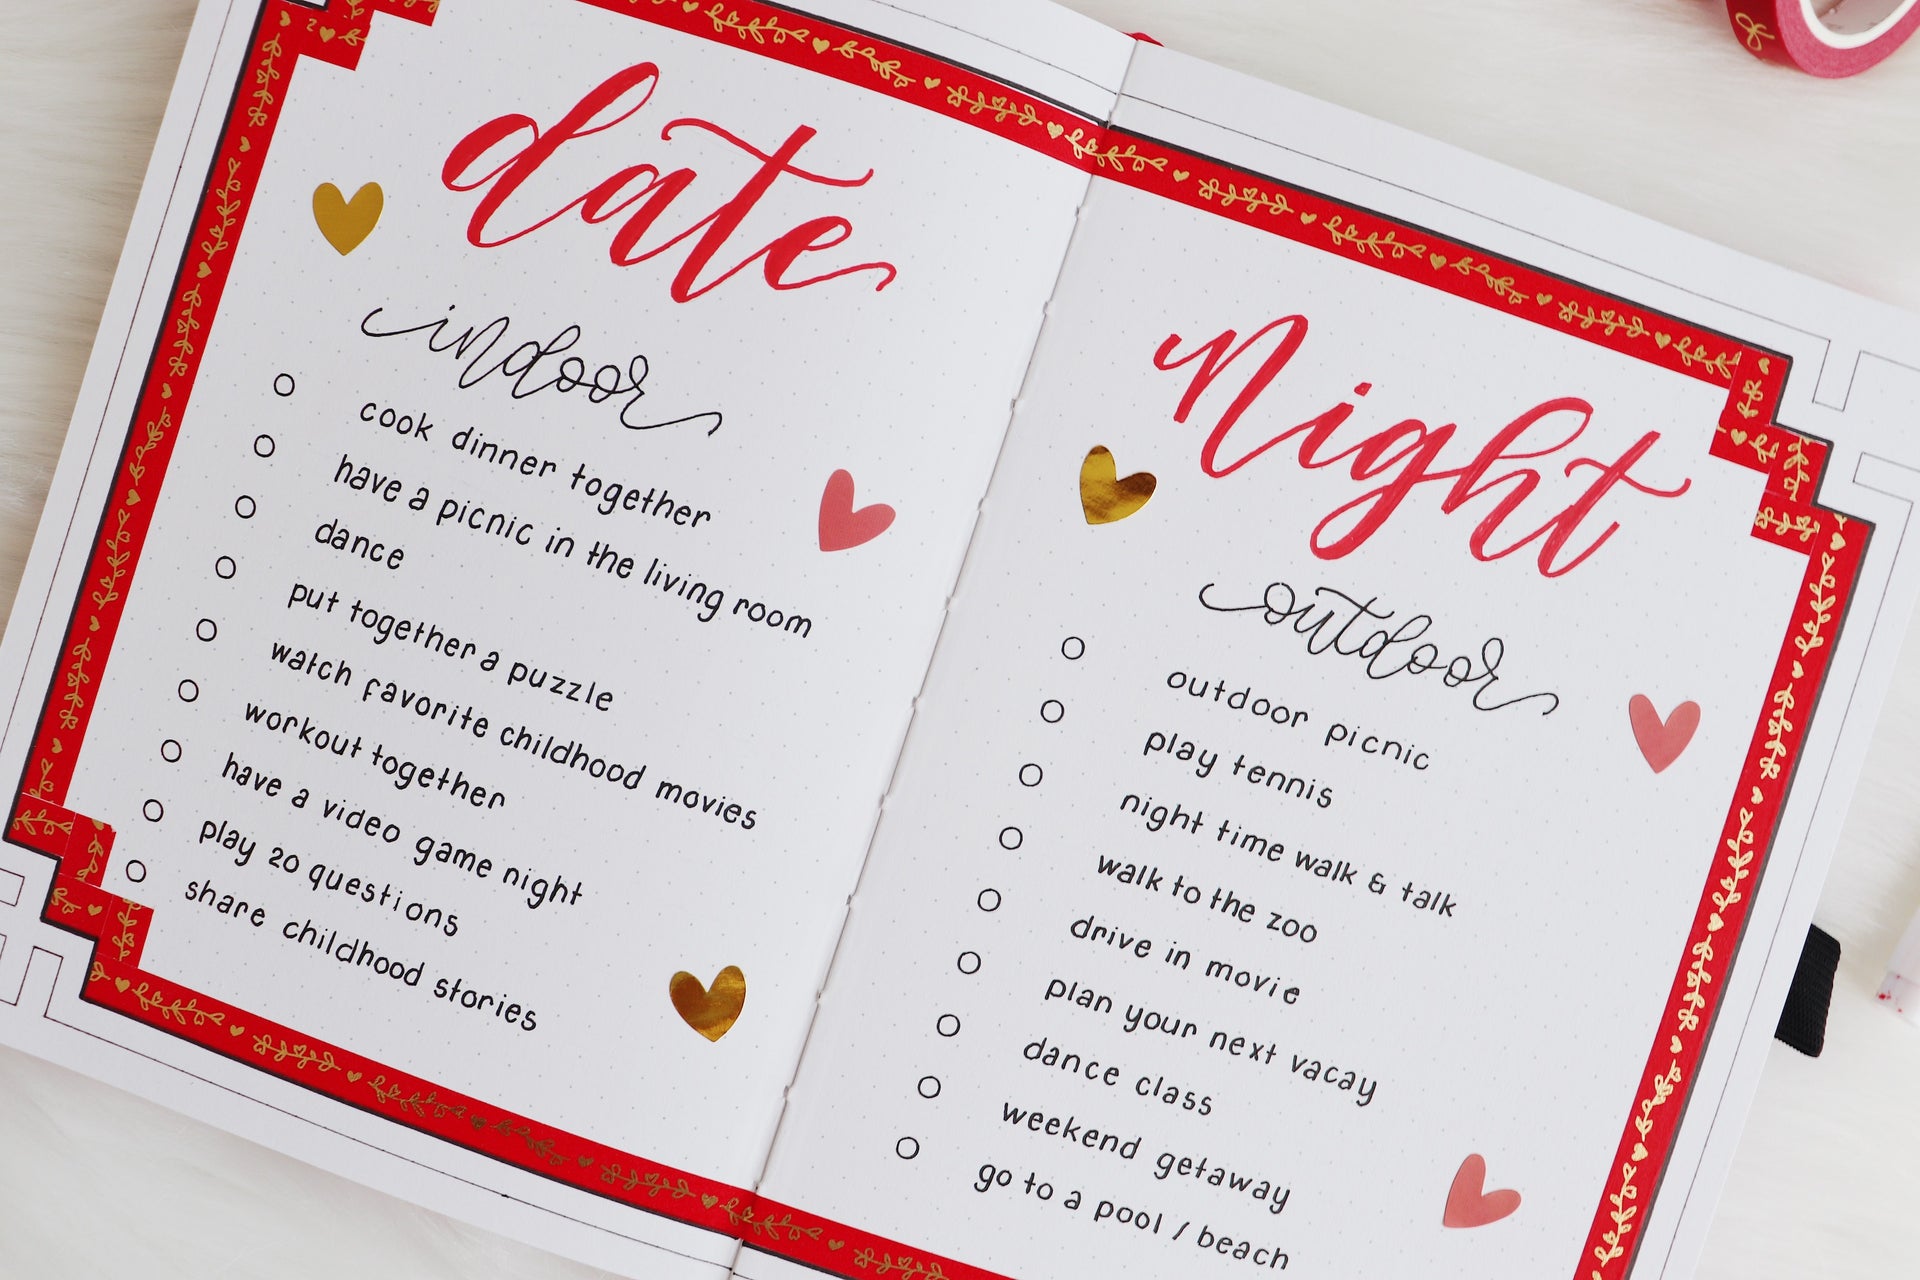 date
indoor
cook dinner together
have a picnic in the living room
dance
put together a puzzle
watch favorite childhood movies
workout together
have a video game night
play 20 questions
share childhood stories
Night
outdoor
outdoor picnic
play tennis
night time walk & talk
walk to the zoo
drive in movie
plan your next vacay
dance class
weekend getaway
go to a pool / beach